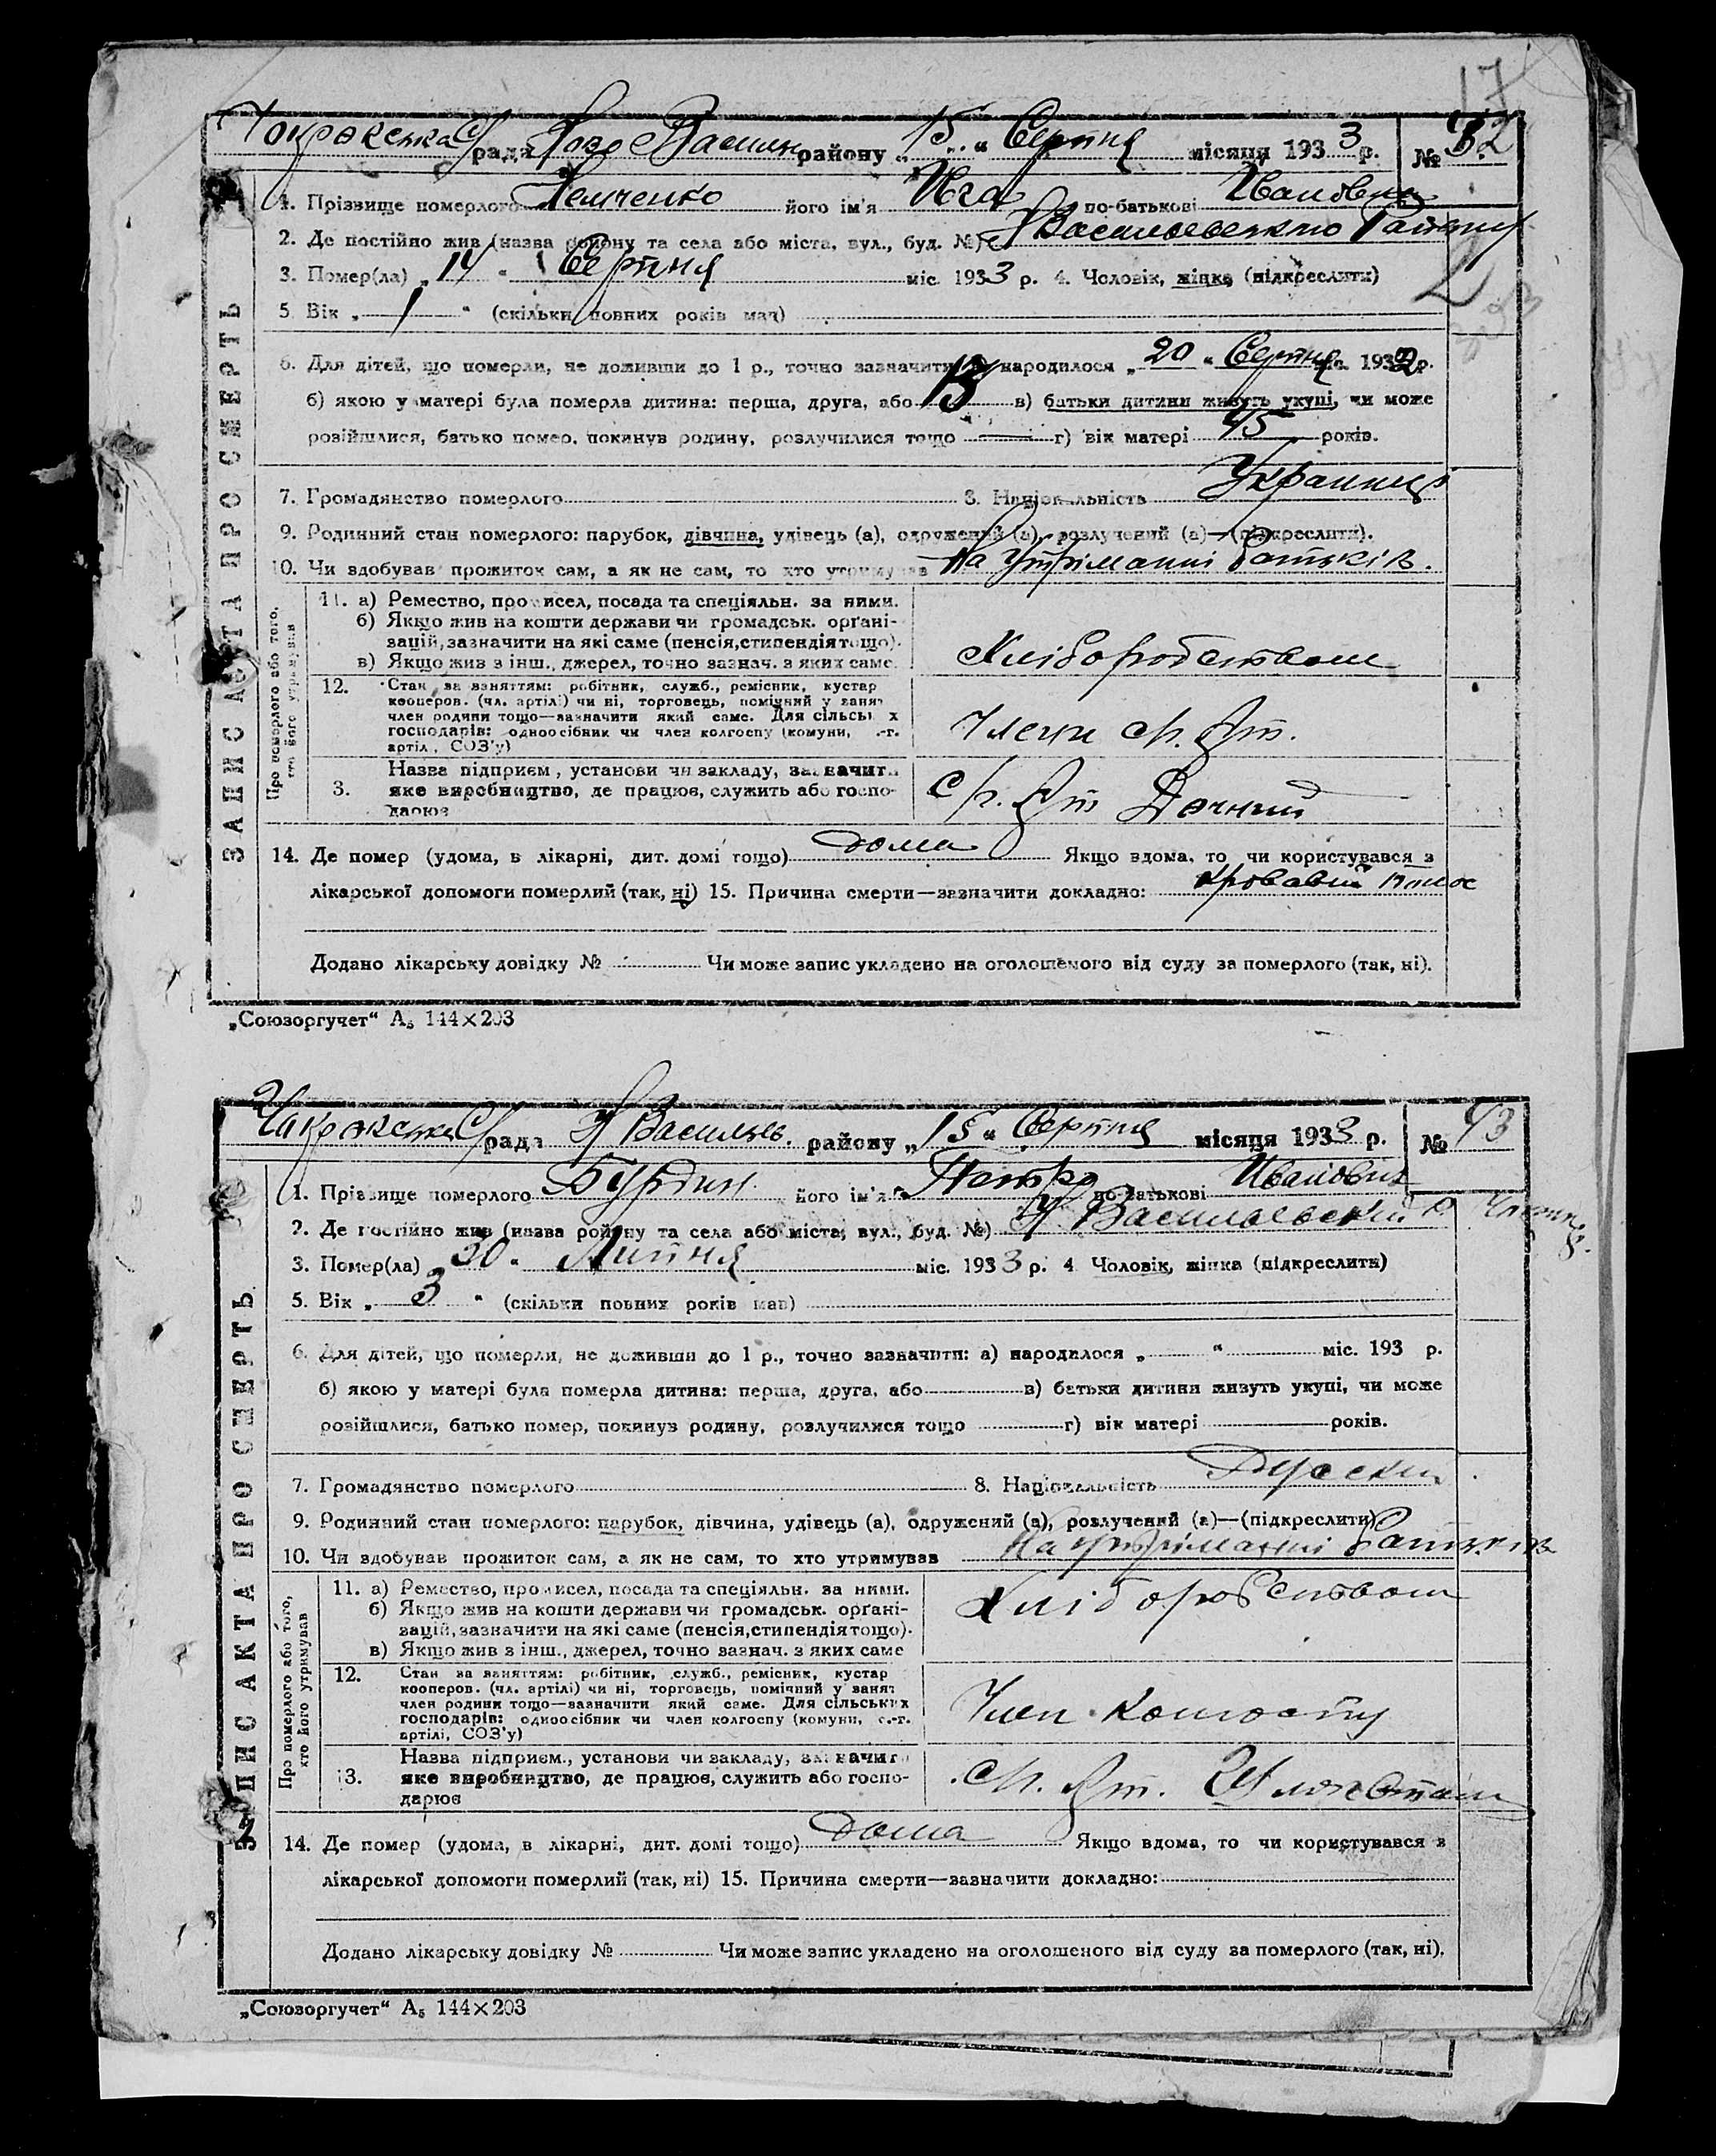 17
рада Ново Василів району „15„ “ Серпня місяця 1933 р. № 42
1. Прізвище померлого Немченко його ім'я по-батькові Ивановна
2. Де постійно жив (назва району та села або міста, вул., буд. №) Васильевского Району
3. Помер(ла) „14 “ Серпня міс. 1933 р. 4. Чоловік, жінка (підкреслити)
5. Вік „ 1 “ (скільки повних років мав)
6. Для дітей, що померли, не доживши до 1 р., точно зазначити: народилося „ 20 “ Серпня 1932 р.
б) якою у матері була померла дитина: перша, друга, або 13 в) батьки дитини живуть укупі, чи може
розійшлися, батько помер, покинув родину, розлучилися тощо г) вік матері 45 років.
7. Громадянство померлого 8. Національність Украинця
9. Родинний стан померлого: парубок, дівчина, удівець (а), одружений (а), розлучений (а)—(підкреслити).
10. Чи здобував прожиток сам, а як не сам, то хто утримував На Утріманні Батьків.
ЗАПИС АКТА ПРО СМЕРТЬ
Про померлого або того, хто його утримував
11. а) Ремество, промисел, посада та спеціяльн. за ними.
б) Якщо жив на кошти держави чи громадськ. орґані-
зацій, зазначити на які саме (пенсія, стипендія тощо).
в) Якщо жив з інш., джерел, точно зазнач. з яких саме.
Хліборобством
12. Стан за заняттям: робітник, служб., ремісник, кустар
кооперов. (чл. артілі) чи ні, торговець, помічний у занят
член родини тощо—зазначити який саме. Для сільських
господарів: одноосібник чи член колгоспу (комуни, с.-г.
артілі, СОЗ'у)
Члени с/г. Арт.
Назва підприєм., установи чи закладу, зазначити
3. яке виробництво, де працює, служить або госпо-
дарює
с/г. Арт Дачний
14. Де помер (удома, в лікарні, дит. домі тощо) дома Якщо вдома, то чи користувався з
лікарської допомоги померлий (так, ні) 15. Причина смерти—зазначити докладно: кровавий понос
Додано лікарську довідку № Чи може запис укладено на оголошеного від суду за померлого (так, ні).
„Союзоргучет“ А₅ 144×203
рада Н Васильев. району „15 “ Серпня місяця 1933 р. № 43
1. Прізвище померлого Бурдин його ім'я Петро по-батькові Иванович
2. Де постійно жив (назва району та села або міста, вул., буд. №) Н Васильевский р
3. Помер(ла) 30 “ Липня міс. 1933 р. 4. Чоловік, жінка (підкреслити)
5. Вік „ 3 “ (скільки повних років мав)
6. Для дітей, що померли, не доживши до 1 р., точно зазначити: а) народилося „ “ міс. 193 р.
б) якою у матері була померла дитина: перша, друга, або в) батьки дитини живуть укупі, чи може
розійшлися, батько помер, покинув родину, розлучилися тощо г) вік матері років.
7. Громадянство померлого 8. Національність Русский
9. Родинний стан померлого: парубок, дівчина, удівець (а), одружений (а), розлучений (а)—(підкреслити)
10. Чи здобував прожиток сам, а як не сам, то хто утримував На утріманні Батьків
ЗАПИС АКТА ПРО СМЕРТЬ
Про померлого або того, хто його утримував
11. а) Ремество, промисел, посада та спеціяльн. за ними.
б) Якщо жив на кошти держави чи громадськ. орґані-
зацій, зазначити на які саме (пенсія, стипендія тощо).
в) Якщо жив з інш., джерел, точно зазнач. з яких саме
Хліборобством
12. Стан за заняттям: робітник, служб., ремісник, кустар
кооперов. (чл. артілі) чи ні, торговець, помічний у занят
член родини тощо—зазначити який саме. Для сільських
господарів: одноосібник чи член колгоспу (комуни, с.-г.
артілі, СОЗ'у)
Член Колгоспу
Назва підприєм., установи чи закладу, зазначити
3. яке виробництво, де працює, служить або госпо-
дарює
с/г. Арт.
14. Де помер (удома, в лікарні, дит. домі тощо) дома Якщо вдома, то чи користувався з
лікарської допомоги померлий (так, ні) 15. Причина смерти—зазначити докладно:
Додано лікарську довідку № Чи може запис укладено на оголошеного від суду за померлого (так, ні).
„Союзоргучет“ А₅ 144×203